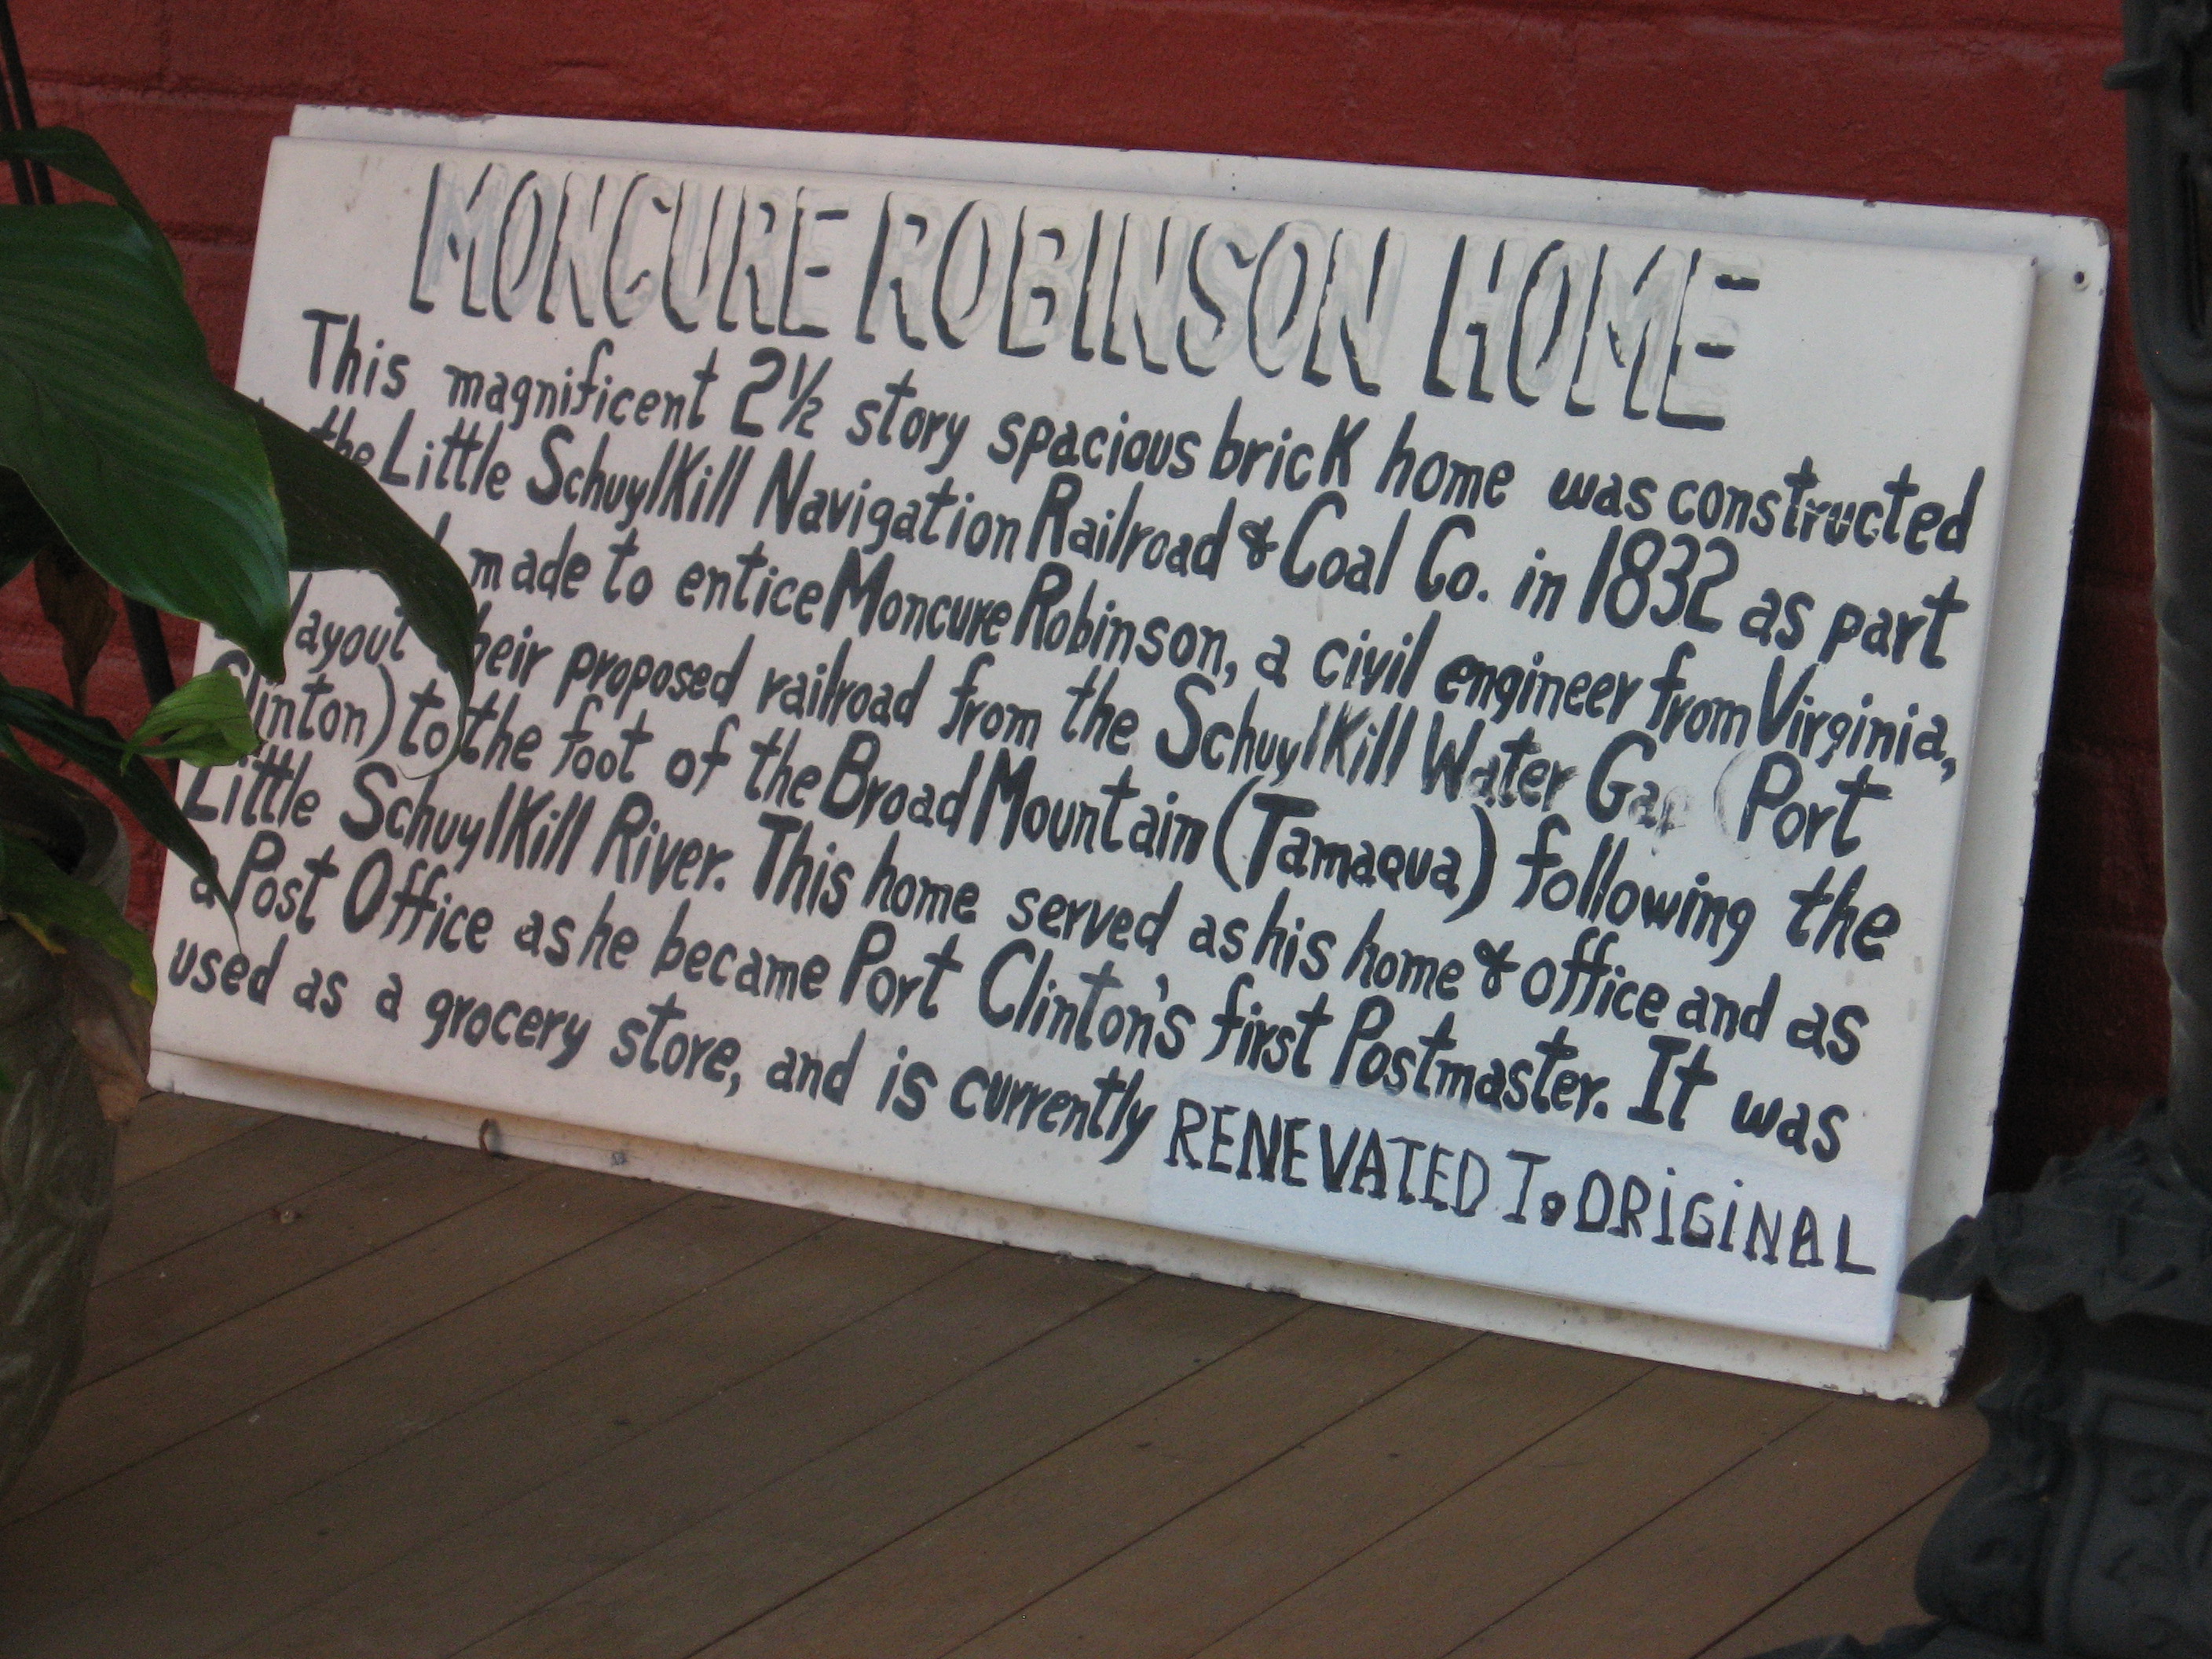 MONCURE ROBINSON HOME
This magnificent 2½ story spacious brick home was constructed
the Little Schuylkill Navigation Railroad & Coal Co. in 1832 as part
made to entice Moncure Robinson, a civil engineer from Virginia,
layout their proposed railroad from the Schuylkill Water Gap (Port
Clinton) to the foot of the Broad Mountain (Tamaqua) following the
Little Schuylkill River. This home served as his home & office and as
a Post Office as he became Port Clinton's first Postmaster. It was
used as a grocery store, and is currently RENEVATED To ORIGINAL